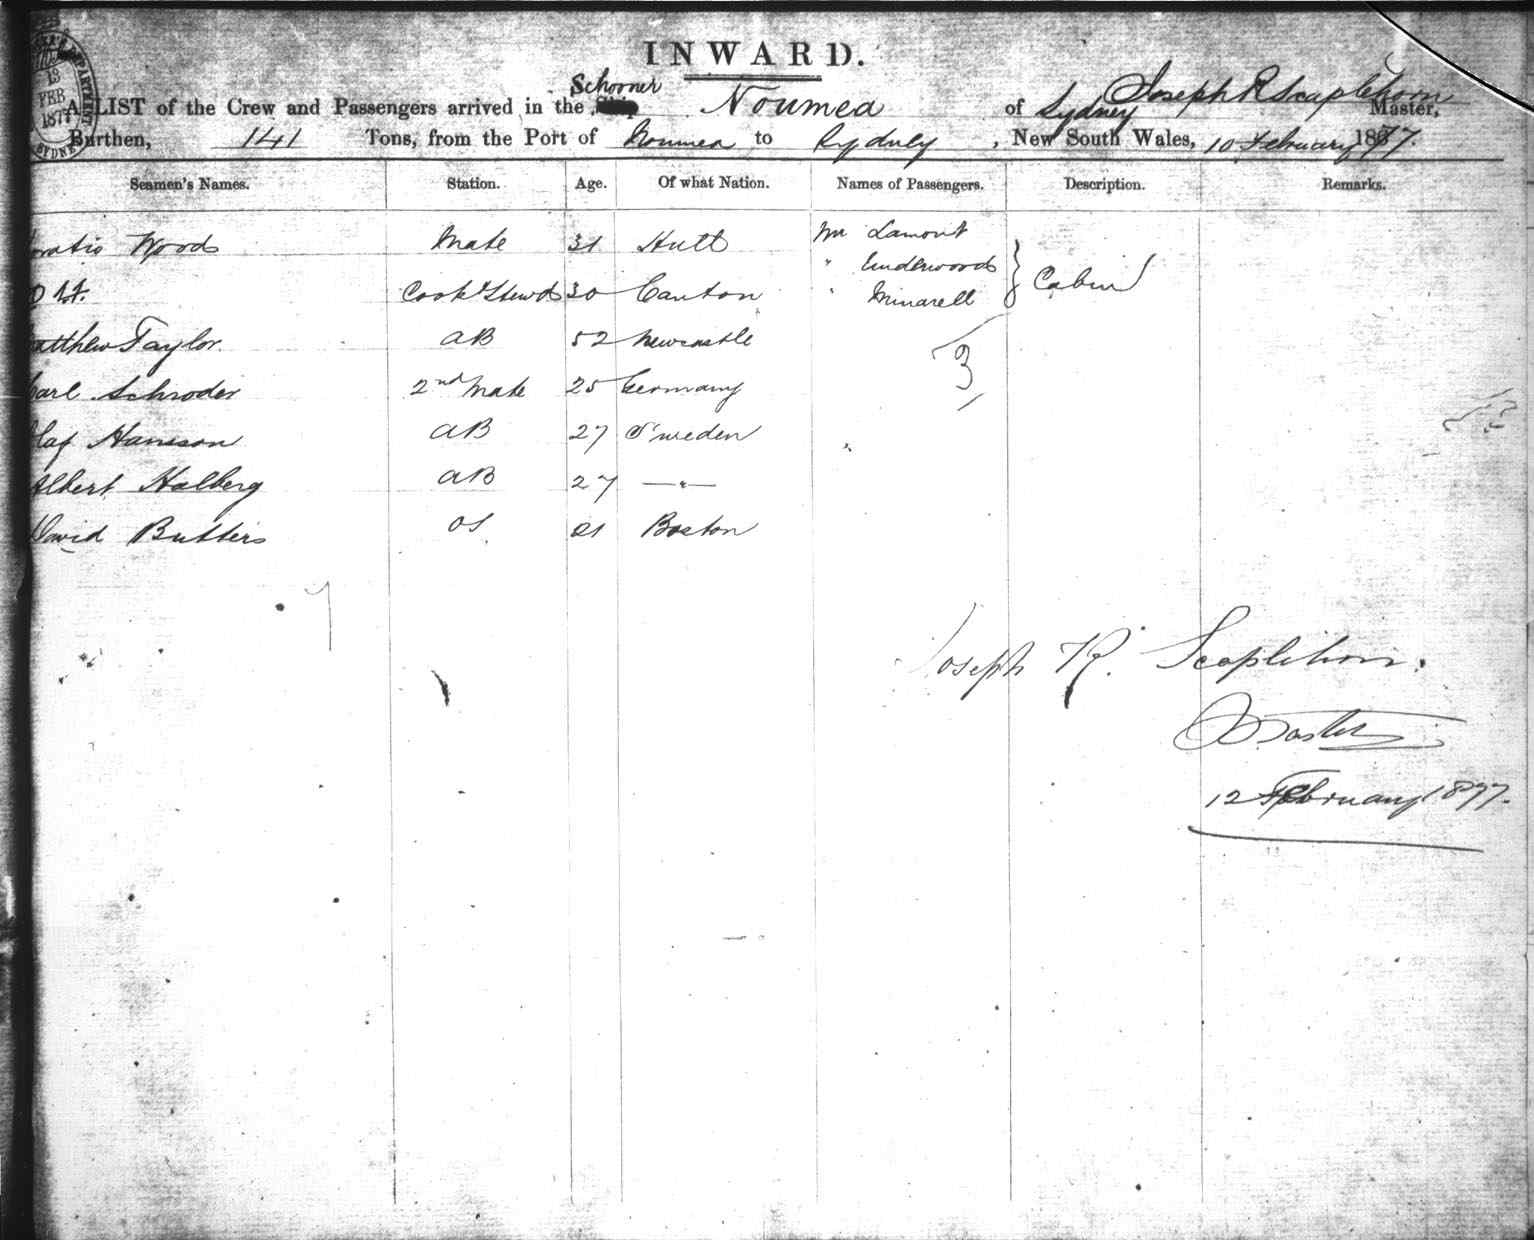 INWARD.
Schooner Joseph R Scaplehorn
A LIST of the Crew and Passengers arrived in the Noumea of Sydney Master,
Burthen, 141 Tons, from the Port of Noumea to Sydney, New South Wales, 10 February 1877.
13
FEB
1877
SYDNE
Seamen's Names. Station. Age. Of what Nation. Names of Passengers. Description. Remarks.
oratio Woods Mate 31 Hull Mr Lamont
" Underwood
Cook & Stewd 30 Canton " Minarell Cabin
atthew Taylor. AB 52 Newcastle
3
arl Schroder 2nd Mate 25 Germany
laf Hansson AB 27 Sweden
Albert Halberg AB 27 — " —
David Butters OS 21 Boston
7
Joseph R. Scaplehorn.
Master
12 February 1877.